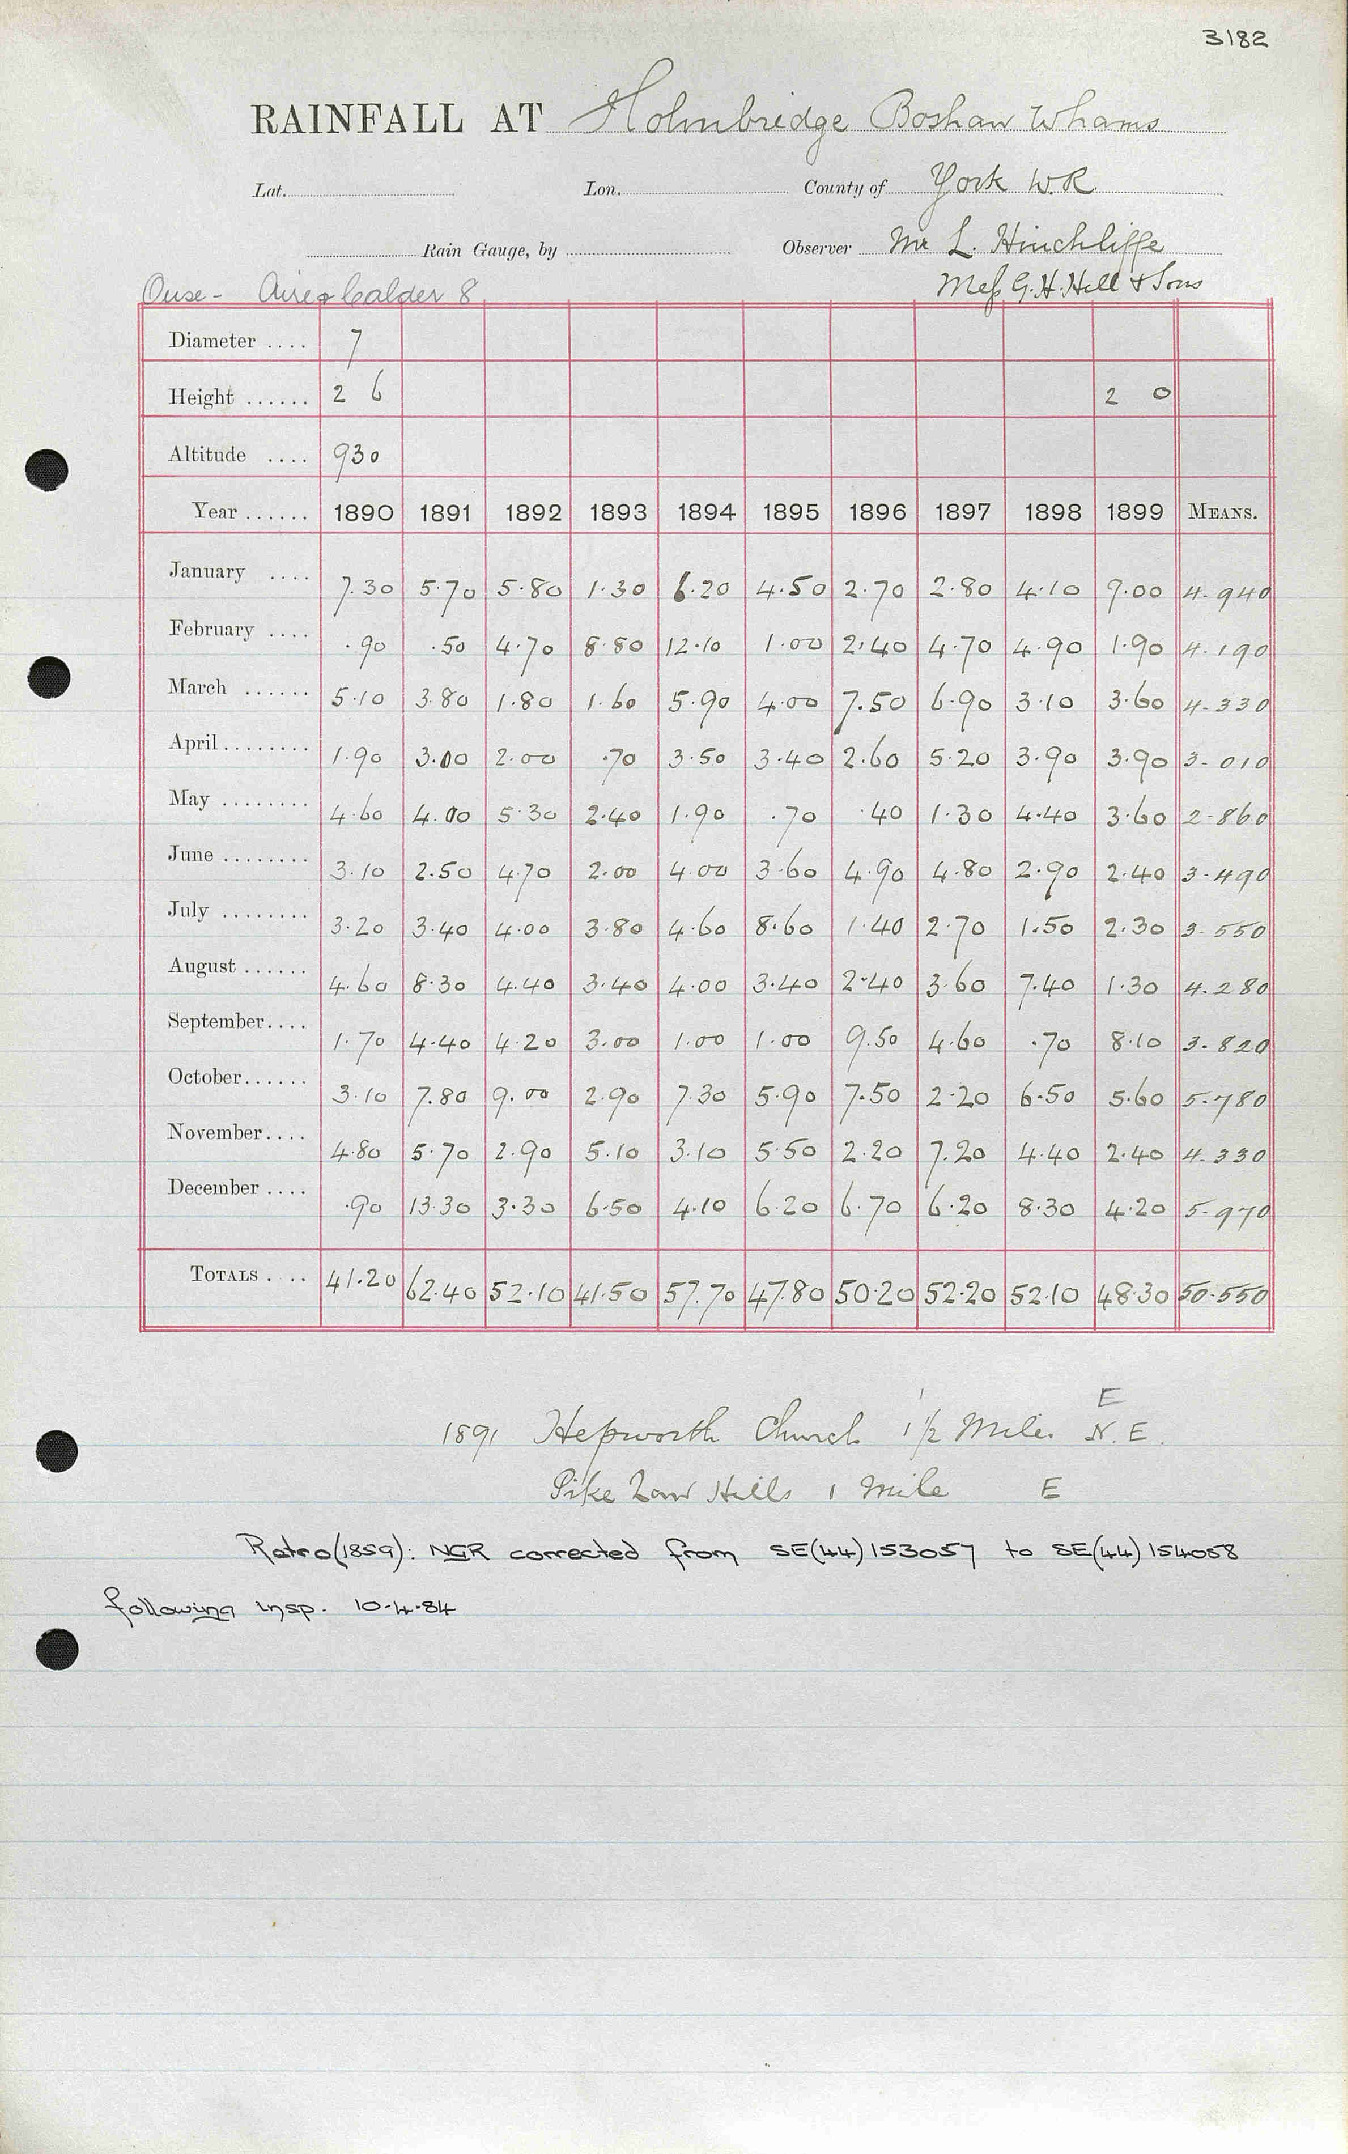 3182
RAINFALL AT Holmbridge Boshaw Whams
Lat. Lon. County of York W.R
Rain Gauge, by Observer Mr L. Hinchliffe
Ouse - Aire & Calder 8 Mess G. H. Hill & Sons
Diameter .... 7
Height ...... 2 6 2 0
Altitude .... 930
Year ...... 1890 1891 1892 1893 1894 1895 1896 1897 1898 1899 MEANS.
January .... 7.30 5.70 5.80 1.30 6.20 4.50 2.70 2.80 4.10 9.00 4.940
February .... .90 .50 4.70 8.80 12.10 1.00 2.40 4.70 4.90 1.90 4.190
March ...... 5.10 3.80 1.80 1.60 5.90 4.00 7.50 6.90 3.10 3.60 4.330
April ........ 1.90 3.00 2.00 .70 3.50 3.40 2.60 5.20 3.90 3.90 3.010
May ........ 4.60 4.00 5.30 2.40 1.90 .70 .40 1.30 4.40 3.60 2.860
June ........ 3.10 2.50 4.70 2.00 4.00 3.60 4.90 4.80 2.90 2.40 3.490
July ........ 3.20 3.40 4.00 3.80 4.60 8.60 1.40 2.70 1.50 2.30 3.550
August ...... 4.60 8.30 4.40 3.40 4.00 3.40 2.40 3.60 7.40 1.30 4.280
September.... 1.70 4.40 4.20 3.00 1.00 1.00 9.50 4.60 .70 8.10 3.820
October...... 3.10 7.80 9.00 2.90 7.30 5.90 7.50 2.20 6.50 5.60 5.780
November.... 4.80 5.70 2.90 5.10 3.10 5.50 2.20 7.20 4.40 2.40 4.330
December .... .90 13.30 3.30 6.50 4.10 6.20 6.70 6.20 8.30 4.20 5.970
TOTALS .... 41.20 62.40 52.10 41.50 57.70 47.80 50.20 52.20 52.10 48.30 50.550
E
1891 Hepworth Church 1 1/2 Miles N.E.
Pike Law Hills 1 Mile E
Retro(1859): NGR corrected from SE(44)153057 to SE(44)154058
following insp. 10.4.84